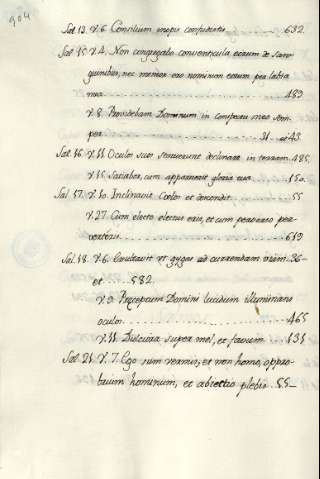 904
Sal. 13. V. 6. Consilium inopis confudistis ........ 632
Sal. 15. V. 4. Non congregabo conventicula eorum de san-
guinibus, nec memor ero nominum eorum per labia
mea ........ 483
V. 8. Providebam Dominum in conspectu meo sem-
per ........ 31. et 43
Sal. 16. V. 11. Oculos suos statuerunt declinare in terram. 485.
V. 15. Satiabor, cum apparuerit gloria tua ........ 150.
Sal. 17. V. 10. Inclinavit Cœlos et descendit ........ 55
V. 27. Cum electo electus eris, et cum perverso per-
verteris ........ 619
Sal. 18. V. 6. Exultavit ut gygas ad currendam viam. 36-
et ..... 582.
V. 9. Præceptum Domini lucidum illuminans
oculos ........ 465
V. 11. Dulciora super mel, et favum ..... 131
Sal. 21. V. 7. Ego sum vermis, et non homo, oppro-
brium hominum, et abiectio plebis .. 55-